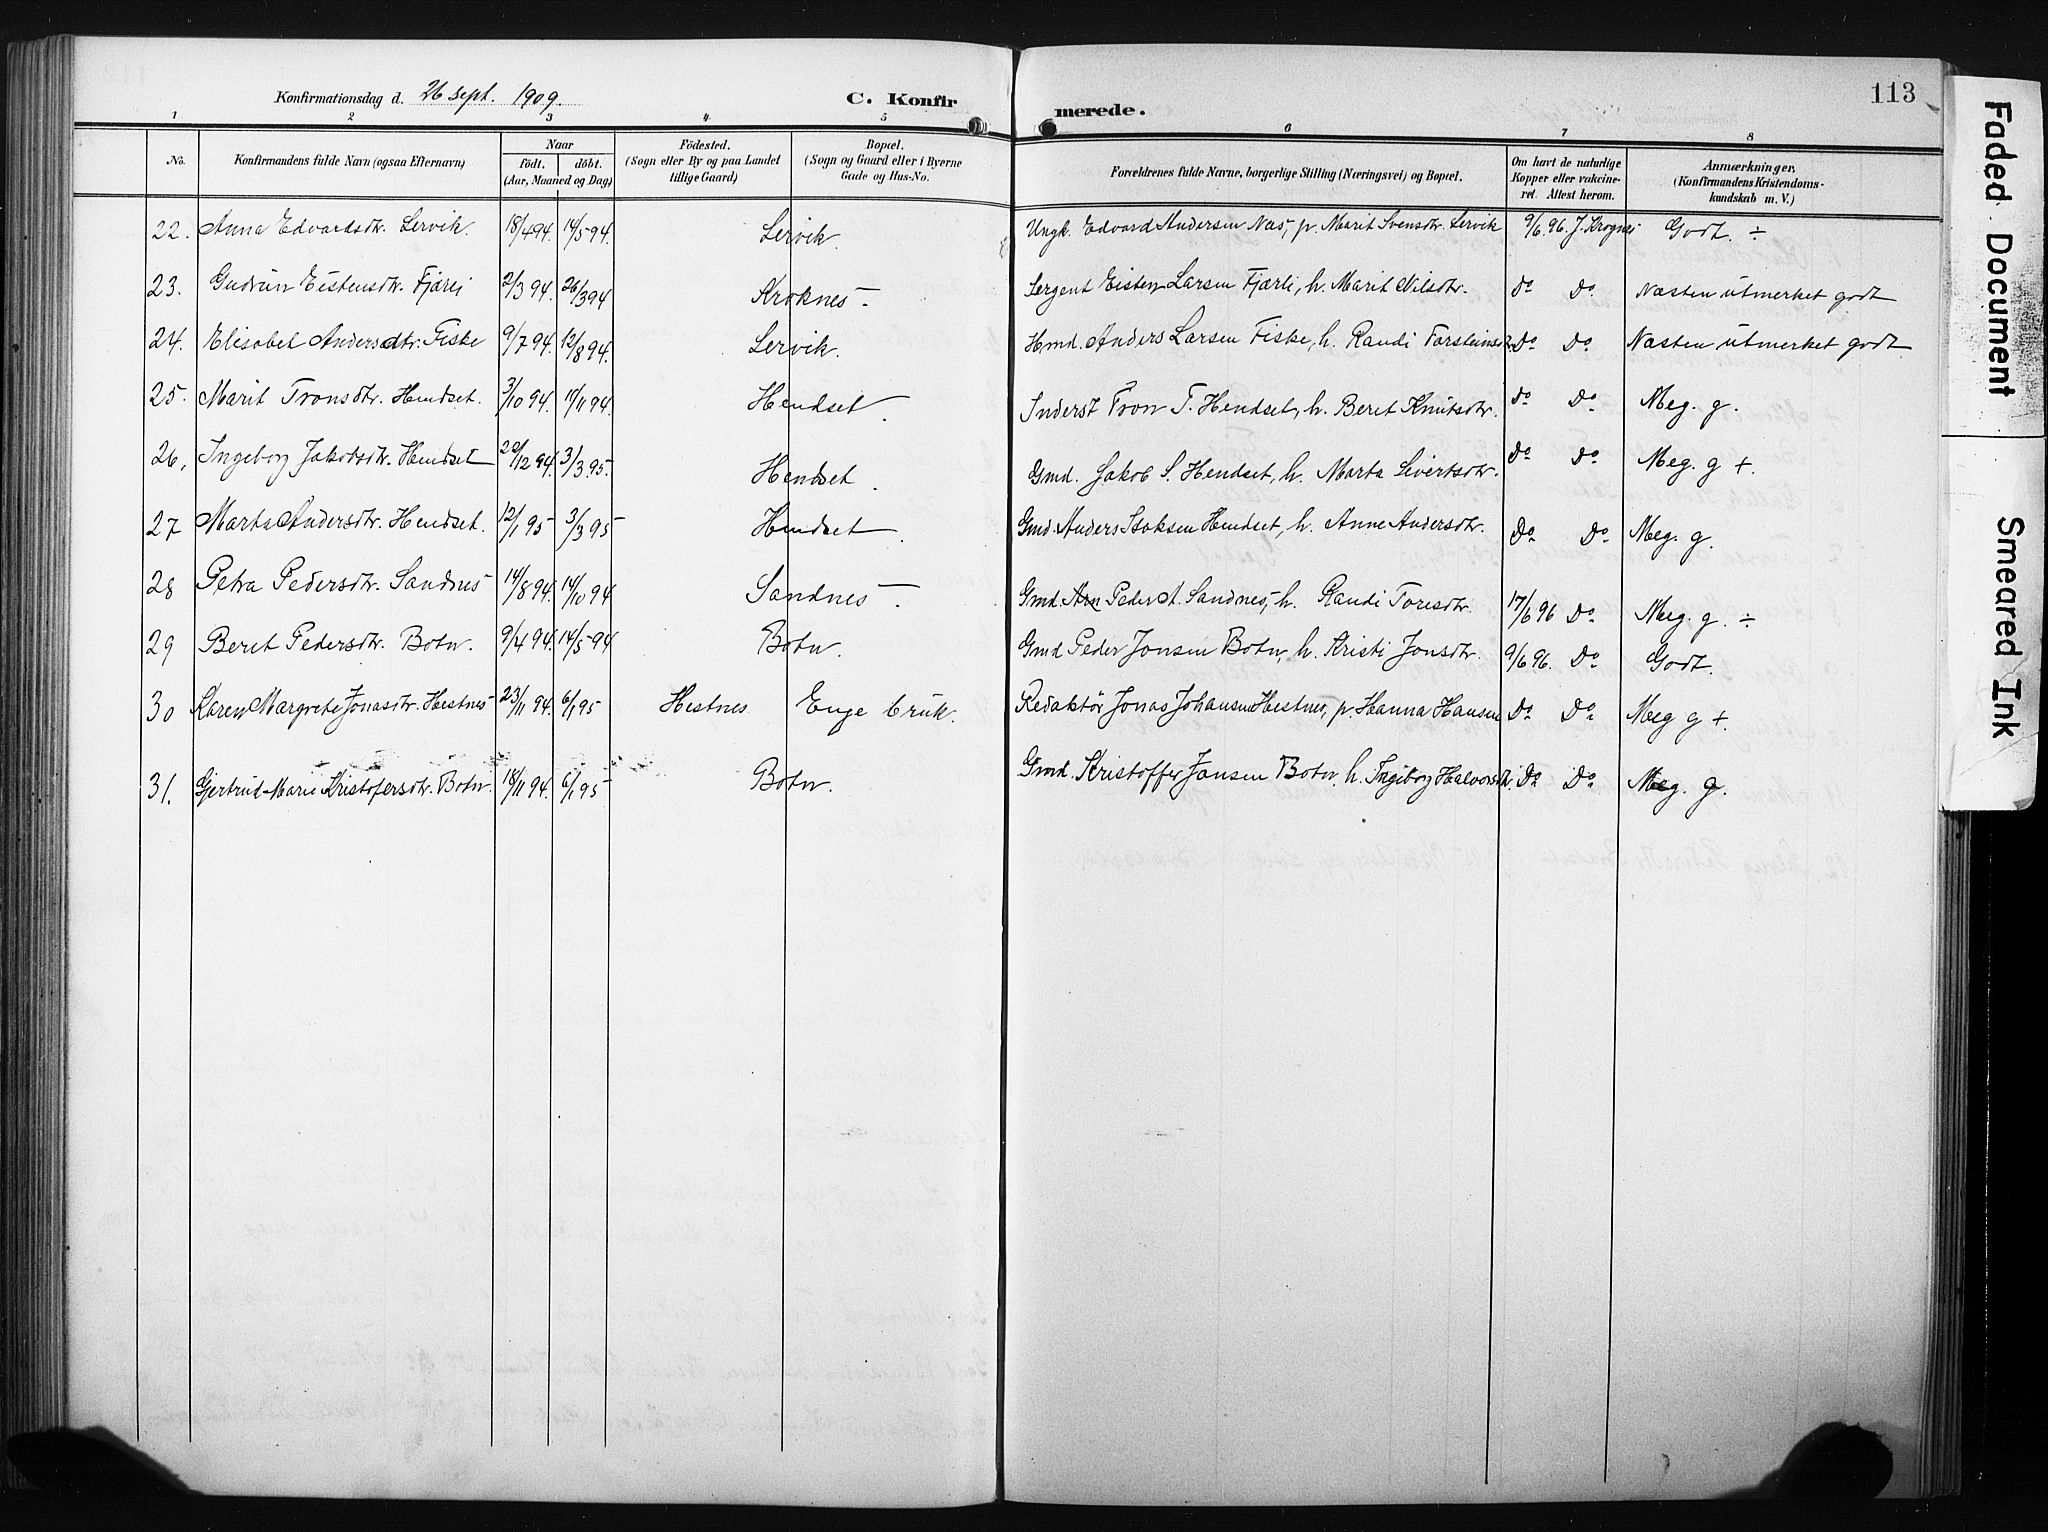 Konfirmationsdag d. 26 sept. 1909. C. Konfir merede. 113
1 2 3 4 5 6 7 8
No. Konfirmandens fulde Navn (ogsaa Efternavn) Naar födt. döbt. (Aar, Maaned og Dag) Födested. (Sogn eller By og paa Landet tillige Gaard) Bopæl. (Sogn og Gaard eller i Byerne Gade og Hus-No. Forældrenes fulde Navne, borgerlige Stilling (Næringsvei) og Bopæl. Om havt de naturlige Kopper eller vakcineret. Attest herom. Anmærkninger, (Konfirmandens Kristendomskundskab m. V.)
22. Anna Edvardsdtr. Lervik. 18/4 94. 14/5 94. Lervik. Ungk. Edvard Andersen Næs, p. Marit Svensdtr. Lervik 9/6. 96. J. Krognes Godt. ÷
23. Gudrun Eistensdtr. Fjærli 2/3 94. 26/3 94 Kroknes. Sergent Eisten Larsen Fjærli, h. Marit Nilsdtr. Do Do. Næsten utmerket godt
24. Elisabet Andersdtr. Fiske 9/7 94. 12/8 94. Lervik. Hmd. Anders Larsen Fiske, h. Randi Torsteinsdtr. Do Do. Næsten utmerket godt
25. Marit Tronsdtr. Hendset. 3/10 94. 11/11 94. Hendset. Inderst Tron T. Hendset, h. Beret Knutsdtr. Do Do. Meg. g.
26, Ingeborg Jakobsdtr. Hendset 20/12 94. 3/3 95. Hendset. Gmd. Jakob S. Hendset, h. Marta Sivertsdtr. Do Do. Meg. g +.
27 Marta Andersdtr. Hendset. 12/1 95 3/3 95 Hendset. Gmd. Anders Isaksen Hendset, h. Anne Andersdtr. Do Do. Meg. g.
28 Petra Pedersdtr. Sandnes 14/8 94. 14/10 94 Sandnes. Gmd. Peder A. Sandnes, h. Randi Toresdtr. 17/6 96 Do Meg. g. ÷
29 Beret Pedersdtr. Botn. 9/4 94. 14/5 94 Botn. Gmd Peder Jonsen Botn, h. Kristi Jonsdtr. 9/6 96. Do Godt.
30 Karen Margrete Jonasdtr. Hestnes 23/11 94. 6/1 95 Hestnes Enge bruk. Redaktör Jonas Johansen Hestnes, p. Hanna Hansen Do Do. Meg g +.
31. Gjertrud Marie Kristofersdtr. Botn. 18/11 94. 6/1 95 Botn. Gmd. Kristoffer Jansen Botn, h. Ingeborg Halvorsdtr. Do Do. Meg. g.
Faded Document
Smeared Ink